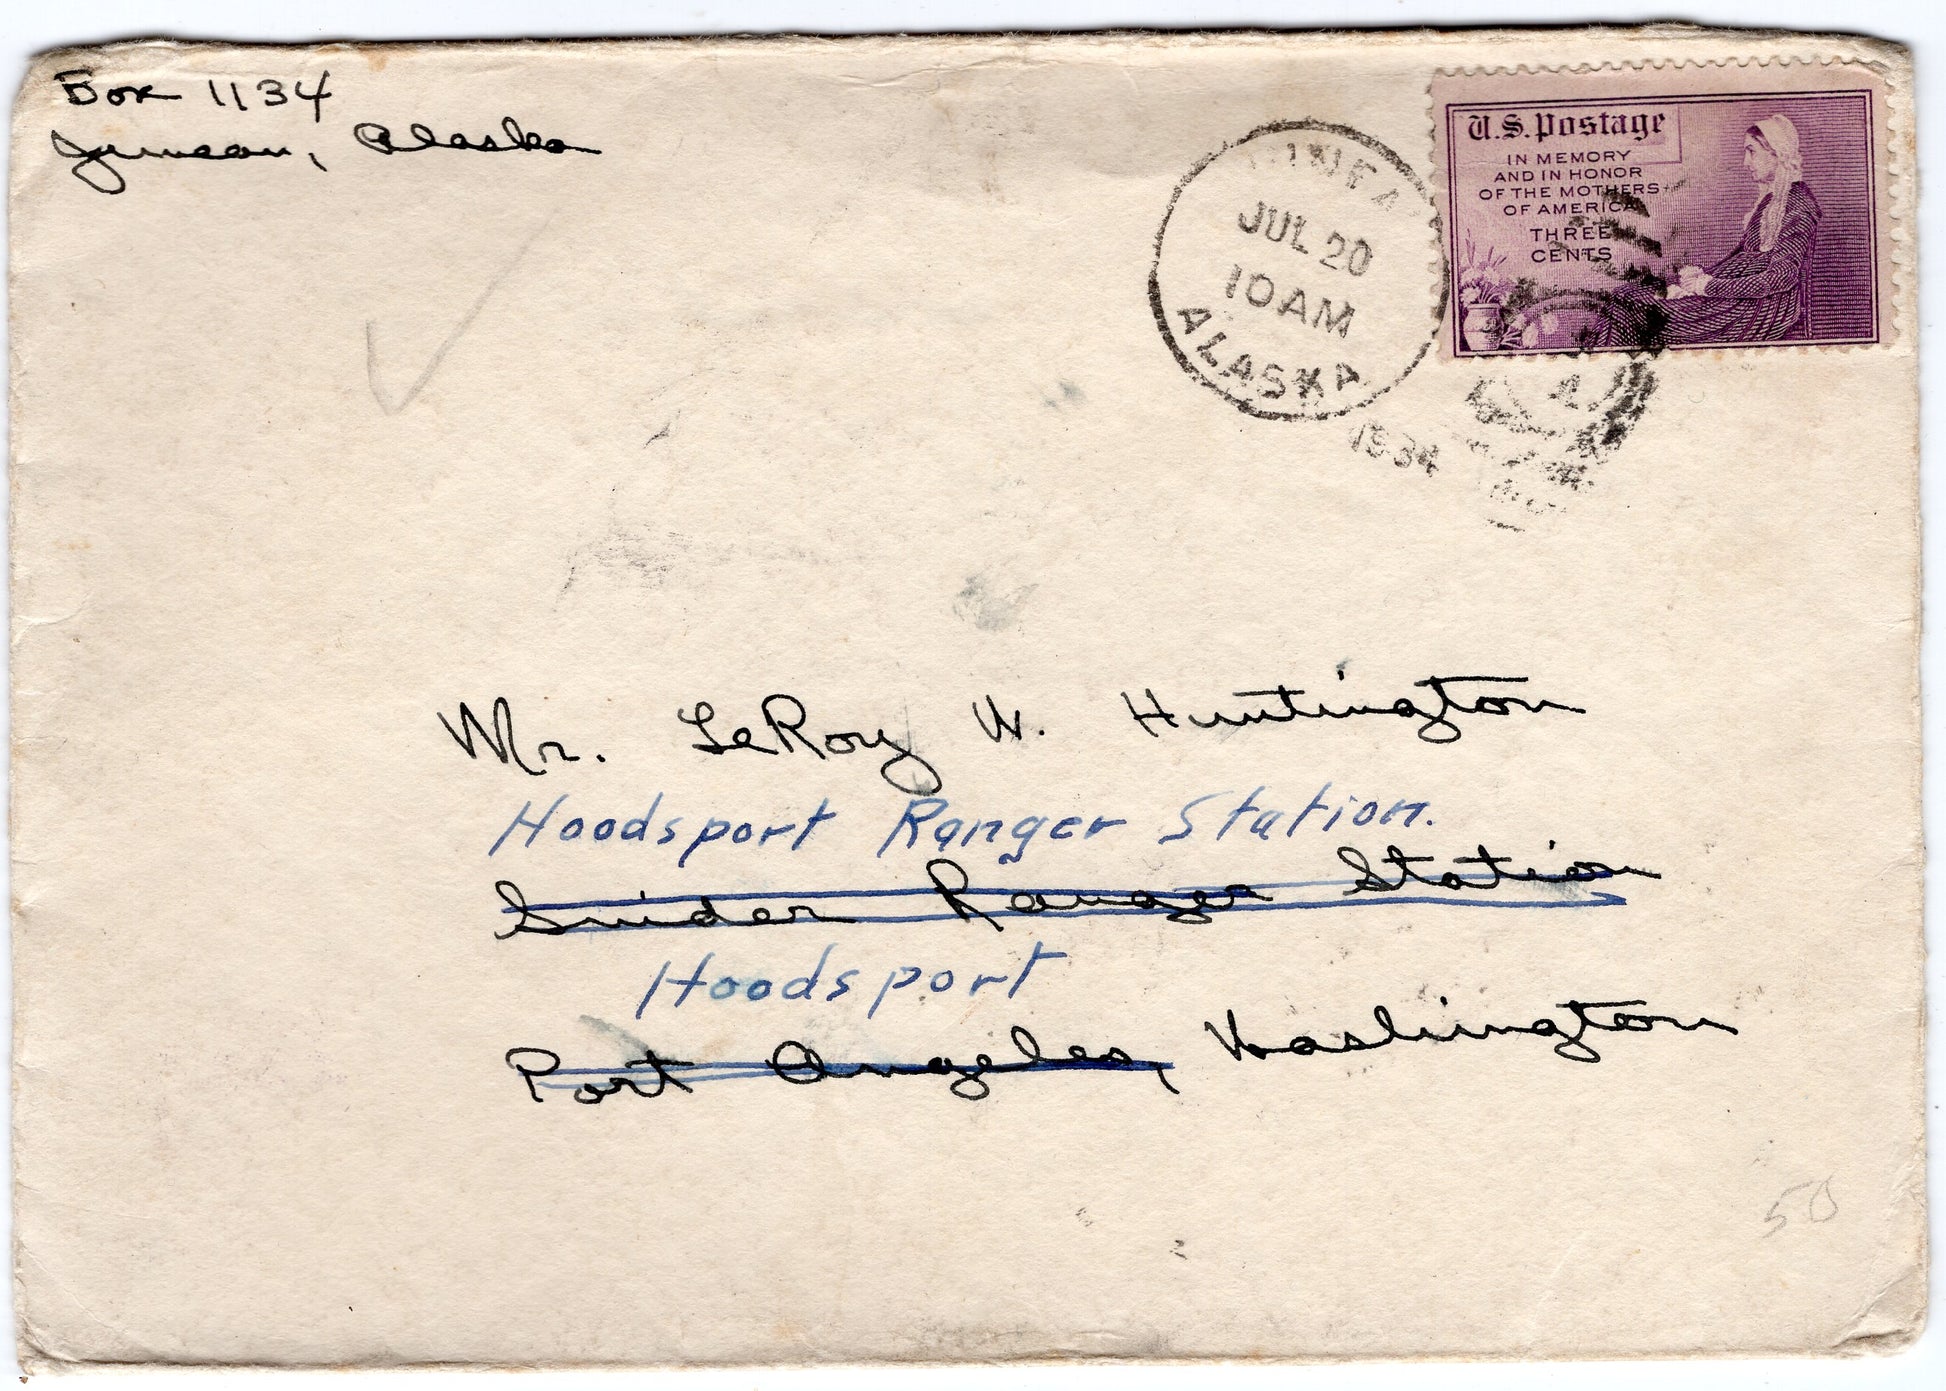 Box 1134
Juneau, Alaska
JUNEAU
JUL 20
10 AM
ALASKA
1934
U.S. Postage
IN MEMORY
AND IN HONOR
OF THE MOTHERS
OF AMERICA
THREE
CENTS
Mr. LeRoy W. Huntington
Hoodsport Ranger Station.
Snider Ranger Station
Hoodsport
Port Angeles, Washington
50